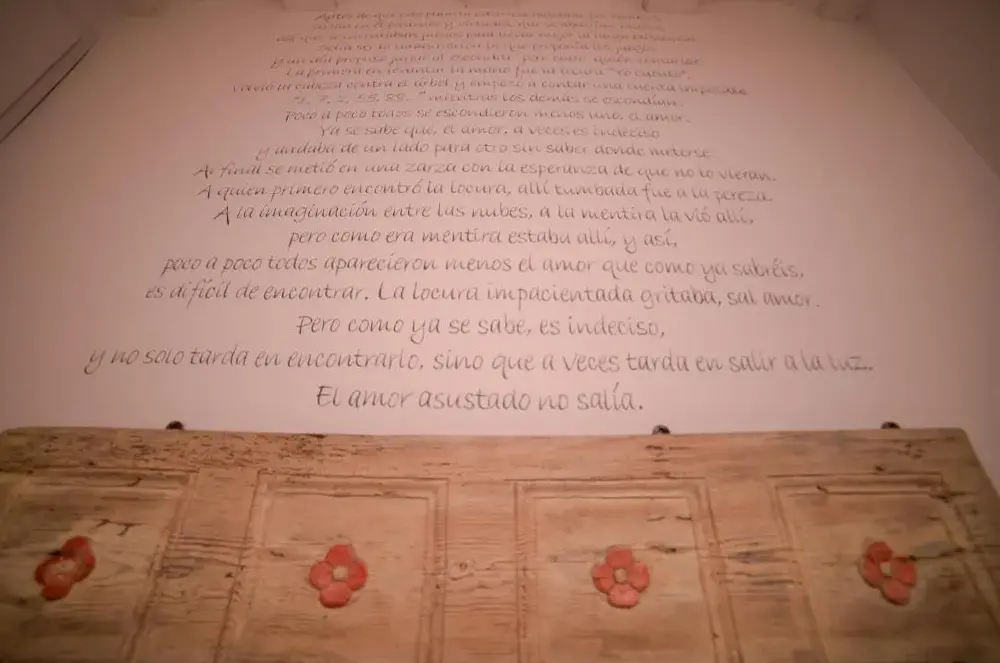 Antes de que este planeta
que se
así que se inventaban juegos para llevar mejor
Solía ser la imaginación la que proponía los juegos.
y un día propuso jugar al escondite, pero
La primera en levantar la mano fue la locura "Yo cuento".
Volvió su cabeza contra el árbol y empezó a contar una cuenta
"1, 7, 2, 55, 88..." mientras los demás se escondían.
Poco a poco todos se escondieron menos uno, el amor.
Ya se sabe que, el amor, a veces es indeciso
y andaba de un lado para otro sin saber donde meterse.
Al final se metió en una zarza con la esperanza de que no lo vieran.
A quien primero encontró la locura, allí tumbada fue a la pereza.
A la imaginación entre las nubes, a la mentira la vió allí,
pero como era mentira estaba allí, y así,
poco a poco todos aparecieron menos el amor que como ya sabréis,
es difícil de encontrar. La locura impacientada gritaba, sal amor.
Pero como ya se sabe, es indeciso,
y no solo tarda en encontrarlo, sino que a veces tarda en salir a la luz.
El amor asustado no salía.